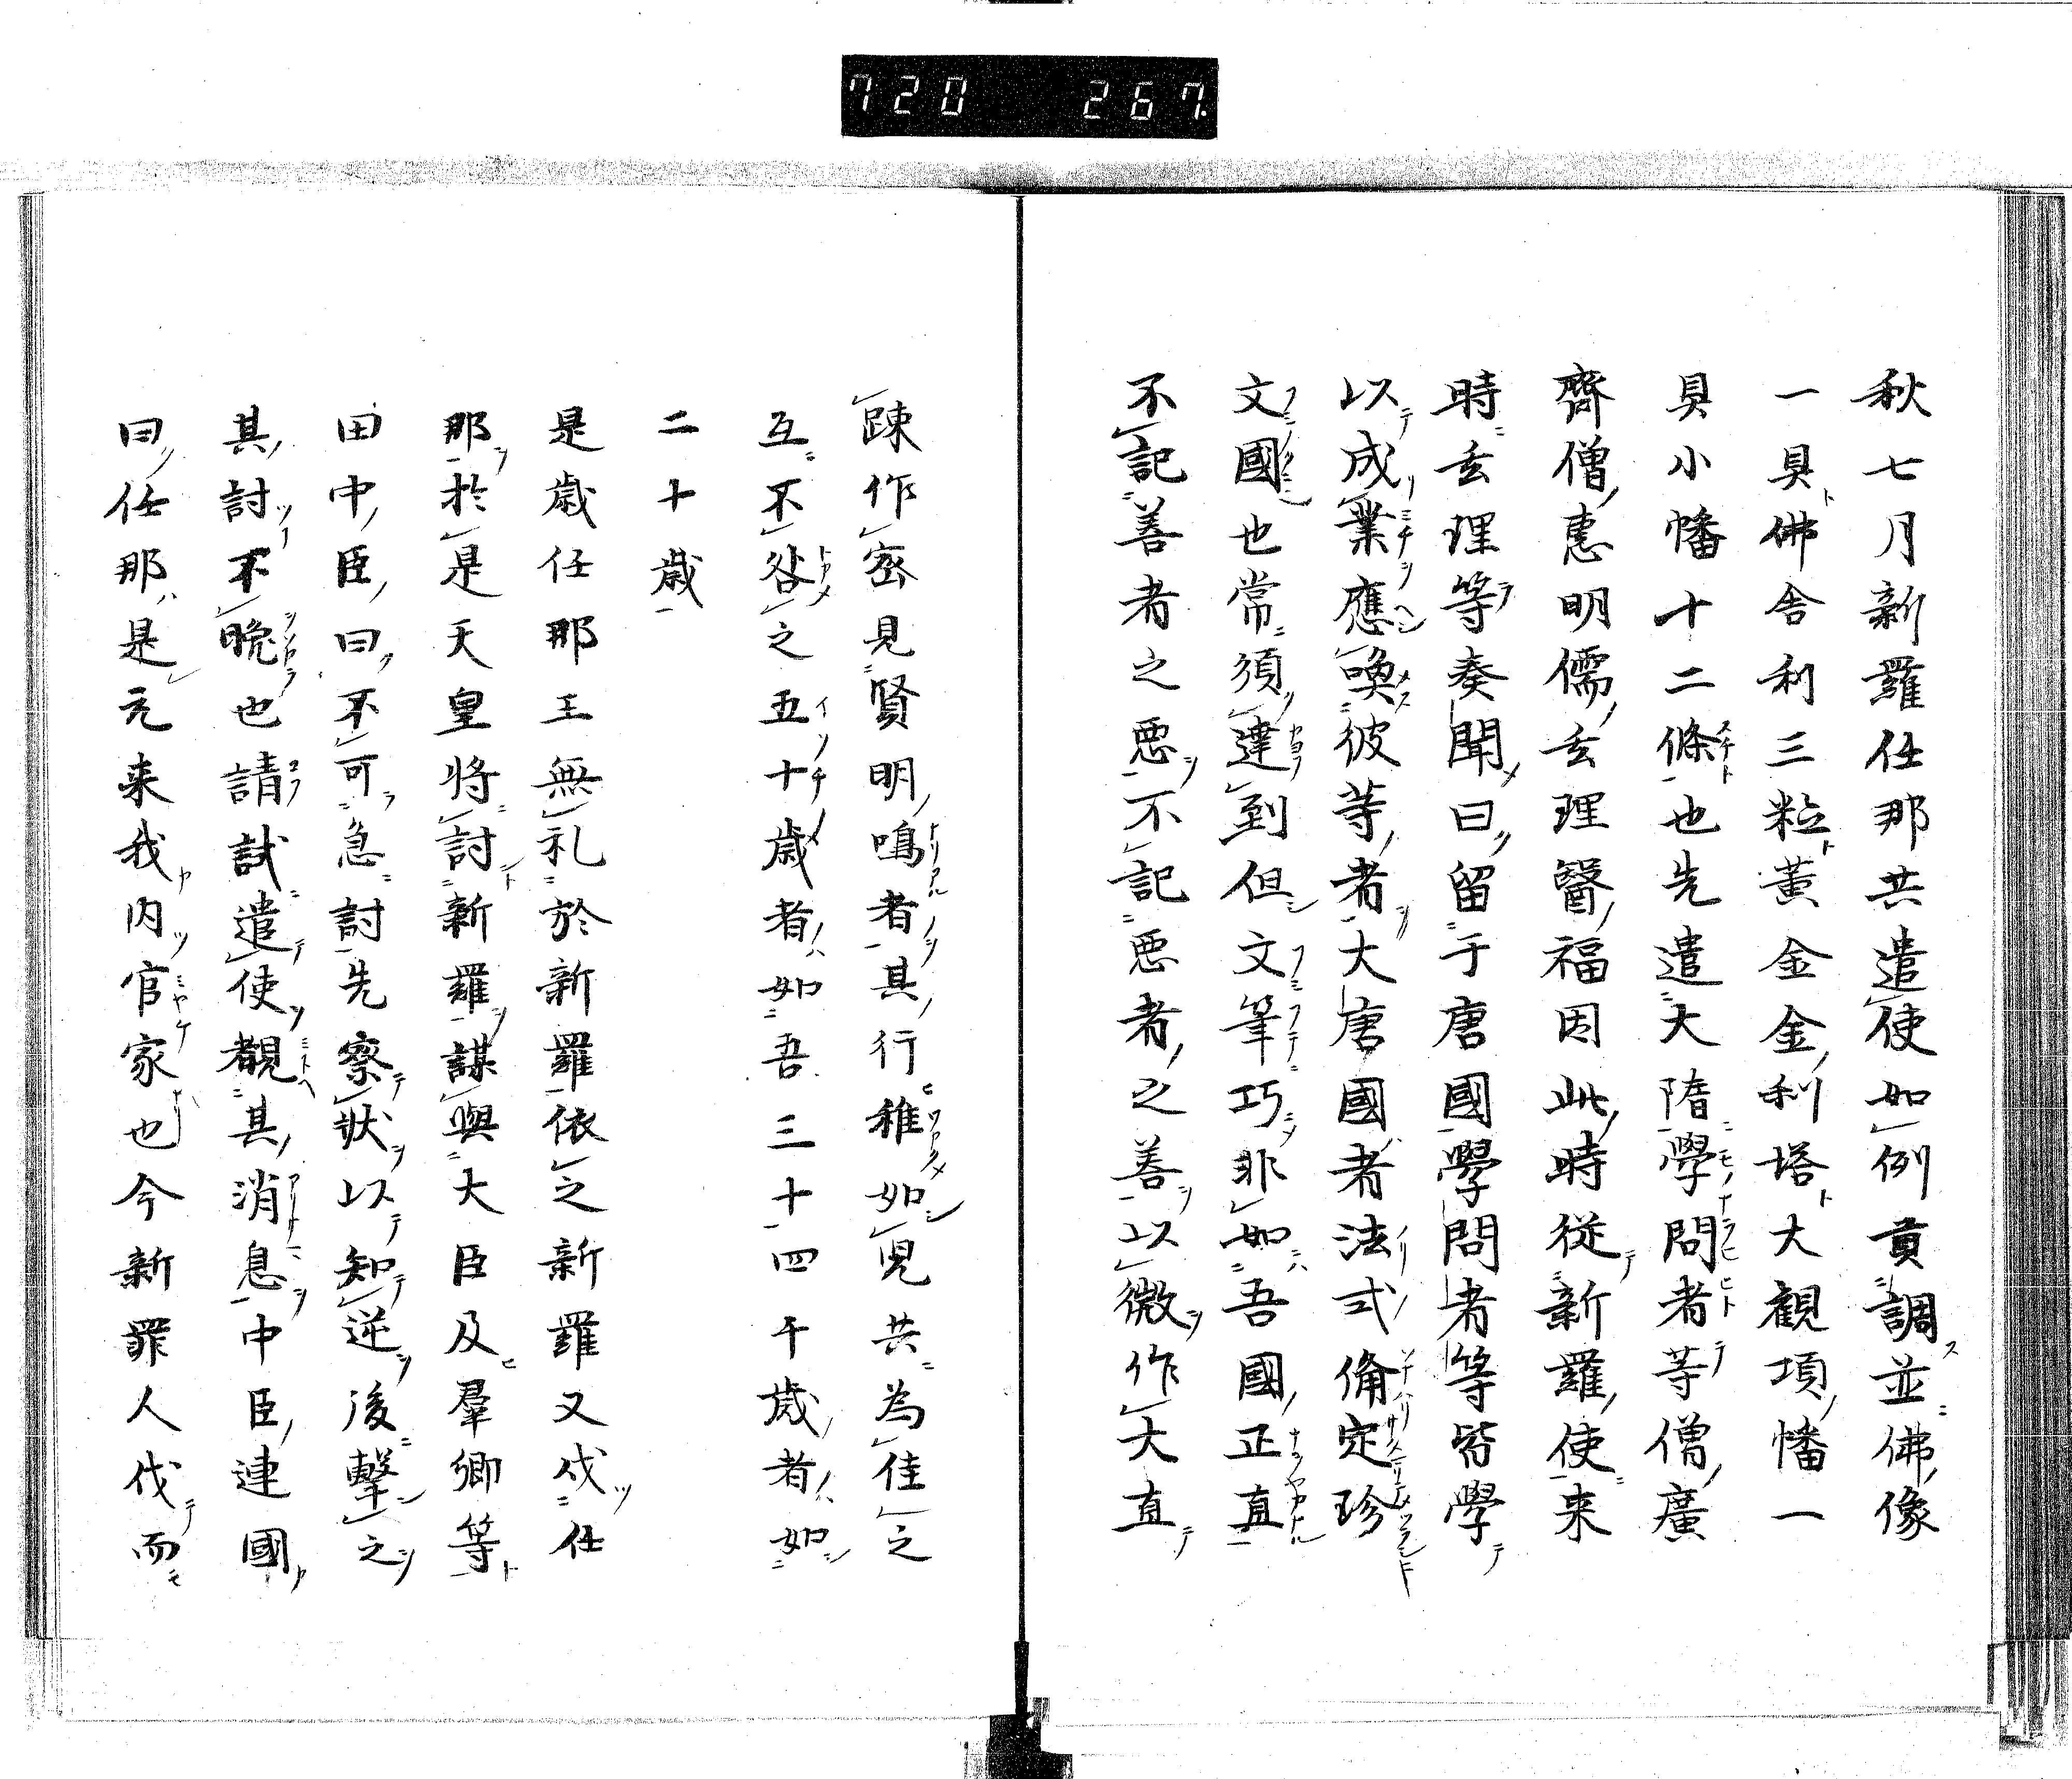 720 267
秋七月新羅任那共遣使如例貢調並佛像
一具佛舎利三粒黄金金利塔大観項幡一
具小幡十二條也先遣大隋學問者等僧廣
齊僧恵明儒玄理醫福因此時從新羅使来
時玄理等奏聞曰留于唐國學問者等皆學
以成業應喚彼等者大唐國者法式俻定珍
文國也常須達到但文筆巧非如吾國正直
不記善者之悪不記悪者之善以微作大直
踈作宻見賢明鳴者其行稚如児共為佳之
互不咎之五十歳者如吾三十四干歳者如
二十歳
是歳任那王無礼於新羅依之新羅又伐任
那於是天皇将討新羅謀與大臣及羣卿等
田中臣曰不可急討先察状以知逆後擊之
其討不晩也請試遣使覩其消息中臣連國
曰任那是元来我内官家也今新罪人伐而